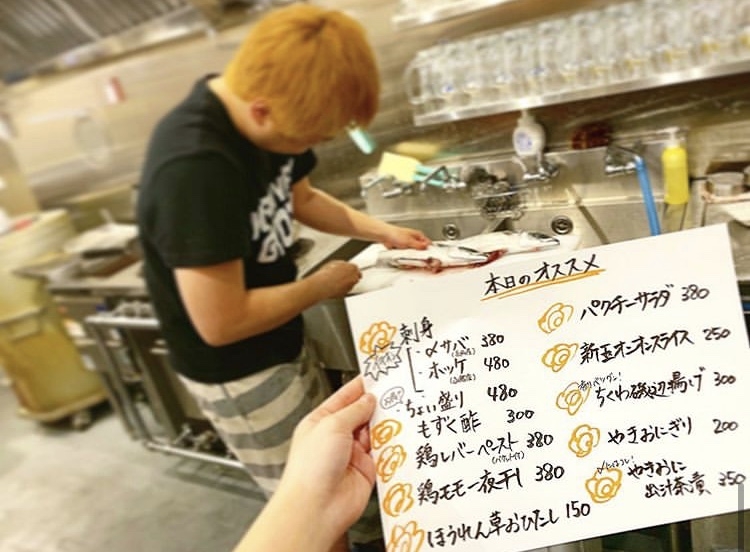 本日のオススメ
刺身
・〆サバ 380
・ホッケ 480
・ちょい盛り 480
もずく酢 300
鶏レバーペースト 380
(バケット付)
鶏モモ一夜干し 380
ほうれん草おひたし 150
パクチーサラダ 380
新玉オニオンスライス 250
ちくわ磯辺揚げ 300
やきおにぎり 200
やきおに
出汁茶漬 350